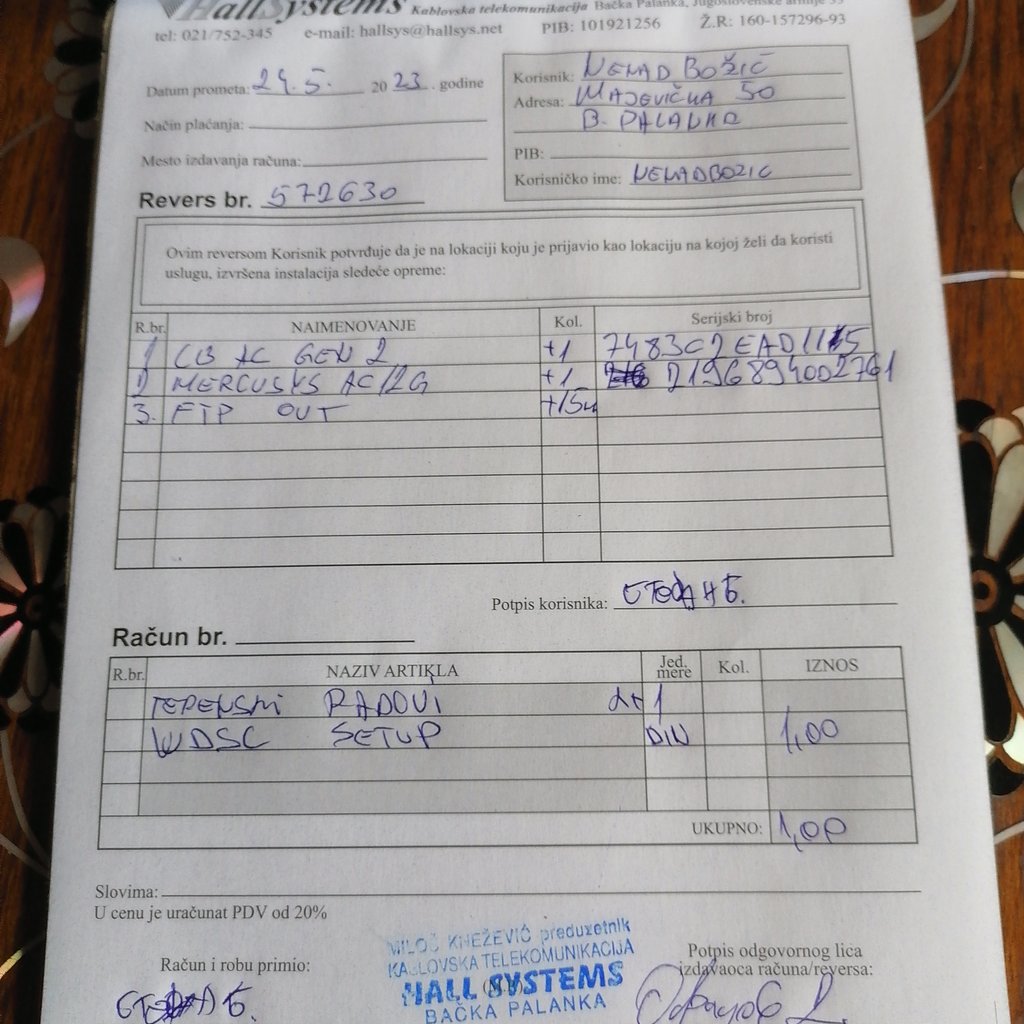 HallSystems Kablovska telekomunikacija Bačka Palanka, Jugoslovenske armije 33
tel: 021/752-345 e-mail: hallsys@hallsys.net PIB: 101921256 Ž.R: 160-157296-93
Datum prometa: 24.5. 2023. godine
Način plaćanja:
Mesto izdavanja računa:
Revers br. 572630
Korisnik: NENAD BOŽIĆ
Adresa: MAJEVIČKA 50
B. PALANKA
PIB:
Korisničko ime: NENADBOZIC
Ovim reversom Korisnik potvrđuje da je na lokaciji koju je prijavio kao lokaciju na kojoj želi da koristi
uslugu, izvršena instalacija sledeće opreme:
R.br. NAIMENOVANJE Kol. Serijski broj
1 CB AC GEN 2 +1 7483C2EAD1115
2 MERCUSYS AC12G +1 2196894002761
3. FTP OUT +15m
Potpis korisnika:
Račun br.
R.br. NAZIV ARTIKLA Jed. mere Kol. IZNOS
TERENSKI RADOVI 1
WDSC SETUP DIN 1,00
UKUPNO: 1,00
Slovima:
U cenu je uračunat PDV od 20%
Račun i robu primio:
MILOŠ KNEŽEVIĆ preduzetnik
KABLOVSKA TELEKOMUNIKACIJA
HALL SYSTEMS
BAČKA PALANKA
Potpis odgovornog lica
izdavaoca računa/reversa: